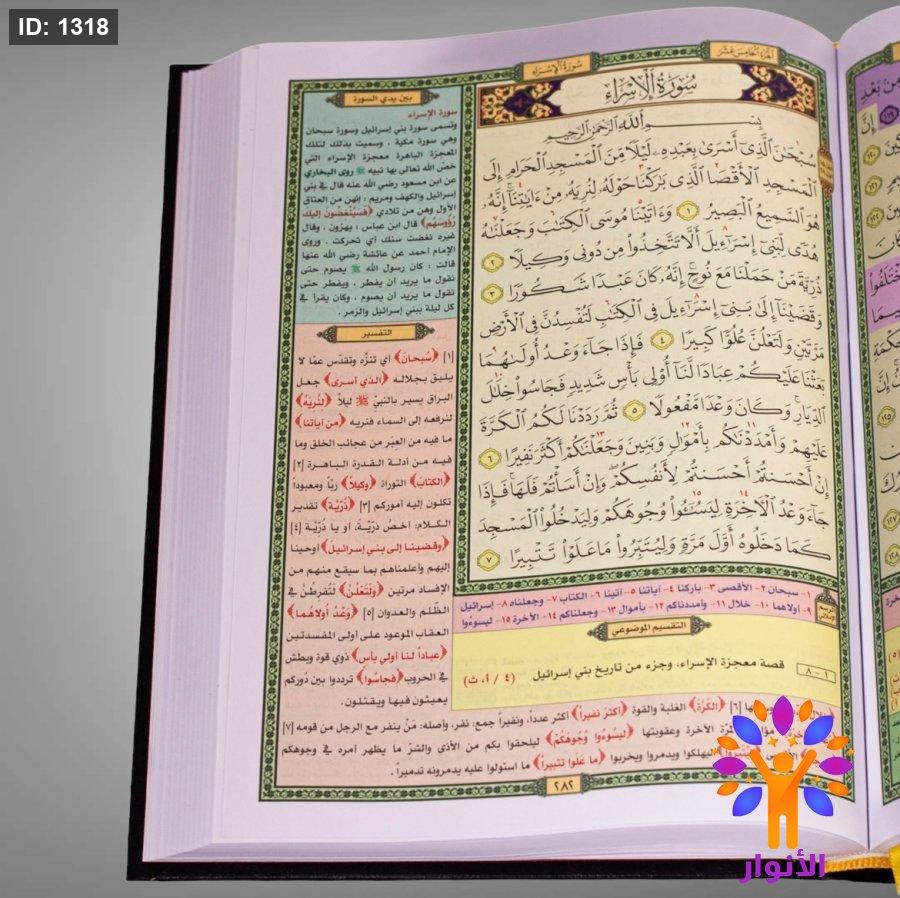 ID: 1318
الجزء الخامس عشر
سورة الإسراء
سورة الإسراء
بسم الله الرحمن الرحيم
سُبْحَٰنَ ٱلَّذِىٓ أَسْرَىٰ بِعَبْدِهِۦ لَيْلًا مِّنَ ٱلْمَسْجِدِ ٱلْحَرَامِ إِلَى
ٱلْمَسْجِدِ ٱلْأَقْصَا ٱلَّذِى بَٰرَكْنَا حَوْلَهُۥ لِنُرِيَهُۥ مِنْ ءَايَٰتِنَآ إِنَّهُۥ
هُوَ ٱلسَّمِيعُ ٱلْبَصِيرُ ١ وَءَاتَيْنَا مُوسَى ٱلْكِتَٰبَ وَجَعَلْنَٰهُ
هُدًى لِّبَنِىٓ إِسْرَٰٓءِيلَ أَلَّا تَتَّخِذُوا۟ مِن دُونِى وَكِيلًا ٢
ذُرِّيَّةَ مَنْ حَمَلْنَا مَعَ نُوحٍ إِنَّهُۥ كَانَ عَبْدًا شَكُورًا ٣
وَقَضَيْنَآ إِلَىٰ بَنِىٓ إِسْرَٰٓءِيلَ فِى ٱلْكِتَٰبِ لَتُفْسِدُنَّ فِى ٱلْأَرْضِ
مَرَّتَيْنِ وَلَتَعْلُنَّ عُلُوًّا كَبِيرًا ٤ فَإِذَا جَآءَ وَعْدُ أُولَىٰهُمَا
بَعَثْنَا عَلَيْكُمْ عِبَادًا لَّنَآ أُو۟لِى بَأْسٍ شَدِيدٍ فَجَاسُوا۟ خِلَٰلَ
ٱلدِّيَارِ وَكَانَ وَعْدًا مَّفْعُولًا ٥ ثُمَّ رَدَدْنَا لَكُمُ ٱلْكَرَّةَ
عَلَيْهِمْ وَأَمْدَدْنَٰكُم بِأَمْوَٰلٍ وَبَنِينَ وَجَعَلْنَٰكُمْ أَكْثَرَ نَفِيرًا ٦
إِنْ أَحْسَنتُمْ أَحْسَنتُمْ لِأَنفُسِكُمْ وَإِنْ أَسَأْتُمْ فَلَهَا فَإِذَا
جَآءَ وَعْدُ ٱلْءَاخِرَةِ لِيَسُۥٓـُٔوا۟ وُجُوهَكُمْ وَلِيَدْخُلُوا۟ ٱلْمَسْجِدَ
كَمَا دَخَلُوهُ أَوَّلَ مَرَّةٍ وَلِيُتَبِّرُوا۟ مَا عَلَوْا۟ تَتْبِيرًا ٧
الرسم الإملائي
١- سبحان ٢- الأقصى ٣- باركنا ٤- آياتنا ٥- آتينا ٦- الكتاب ٧- وجعلناه ٨- إسرائيل
٩- أولاهما ١٠- خلال ١١- وأمددناكم ١٢- بأموال ١٣- وجعلناكم ١٤- الآخرة ١٥- ليسوءوا
التقسيم الموضوعي
١ - ٨ قصة معجزة الإسراء، وجزء من تاريخ بني إسرائيل (٤ / أ، ث)
بين يدي السورة
سورة الإسراء
وتسمى سورة بني إسرائيل وسورة سبحان
وهي سورة مكية ، وسميت بذلك لتلك
المعجزة الباهرة معجزة الإسراء التي
خصّ الله تعالى بها نبيه ﷺ روى البخاري
عن ابن مسعود رضي الله عنه قال في بني
إسرائيل والكهف ومريم : إنهن من العتاق
الأول وهن من تلادي ﴿فَسَيُنْغِضُونَ إليكَ
رُؤُوسَهُم﴾ قال ابن عباس ، يهزون ، وقال
غيره نغضت سنك أي تحركت . وروى
الإمام أحمد عن عائشة رضي الله عنها
قالت : كان رسول الله ﷺ يصوم حتى
نقول ما يريد أن يفطر ، ويفطر حتى
نقول ما يريد أن يصوم ، وكان يقرأ في
كل ليلة ببني إسرائيل والزمر .
التفسير
[١] ﴿سُبحانَ﴾ أي تنزّه وتقدّس عمّا لا
يليق بجلاله ﴿الذي أسرى﴾ جعل
البراق يسير بالنبيّ ﷺ ليلاً ﴿لِنُرِيَهُ﴾
لنرفعه إلى السماء فنريه ﴿من آياتنا﴾
ما فيه من العِبَر من عجائب الخلق وما
فيه من أدلة القدرة الباهرة [٢]
﴿الكتابَ﴾ التوراة ﴿وكيلاً﴾ ربّاً ومعبوداً
تكلون إليه أموركم [٣] ﴿ذُرِّيَّةَ﴾ تقدير
الكلام: أخصّ ذرّيّةَ، أو يا ذُرِّيَّة [٤]
﴿وقضينا إلى بني إسرائيلَ﴾ أوحينا
إليهم وأعلمناهم بما سيقع منهم من
الإفساد مرتين ﴿ولَتَعْلُنّ﴾ لَتُفرِطُنّ في
الظّلم والعدوان [٥] ﴿وَعْدُ أولاهُما﴾
العقاب الموعود على أولى المفسدتين
﴿عباداً لنا أولي بأس﴾ ذوي قوة وبطش
في الحروب ﴿فجاسُوا﴾ ترددوا بين دُوركم
يعيثون فيها ويقتلون.
[٦] ﴿الكَرَّةَ﴾ الغلبة والقوة ﴿أكثرَ نفيراً﴾ أكثر عدداً، ونفيراً جمع: نفر، وأصله: مَنْ ينفر مع الرجل من قومه [٧]
الآخرة وعقوبتها ﴿لِيسُوءُوا وُجُوهَكُمْ﴾ ليلحقوا بكم من الأذى والشرّ ما يظهر أمره في وجوهكم
ليهلكوا ويدمروا ويخربوا ﴿ما عَلَوا تتبيراً﴾ ما استولوا عليه يدمرونه تدميراً.
٢٨٢
الأنوار